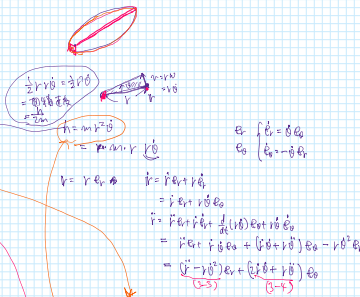 ½ r r θ̇ = ½ r² θ̇
= 面積速度
= h/2m
v = rω
= r θ̇
r
h = m r² θ̇
= m · r r θ̇
e_r { ė_r = θ̇ e_θ
e_θ { ė_θ = -θ̇ e_r
r = r e_r
ṙ = ṙ e_r + r ė_r
= ṙ e_r + r θ̇ e_θ
r̈ = r̈ e_r + ṙ ė_r + d/dt (r θ̇) e_θ + r θ̇ ė_θ
= r̈ e_r + ṙ θ̇ e_θ + (ṙ θ̇ + r θ̈) e_θ - r θ̇² e_r
= (r̈ - r θ̇²) e_r + (2ṙ θ̇ + r θ̈) e_θ
(3-3) (3-4)